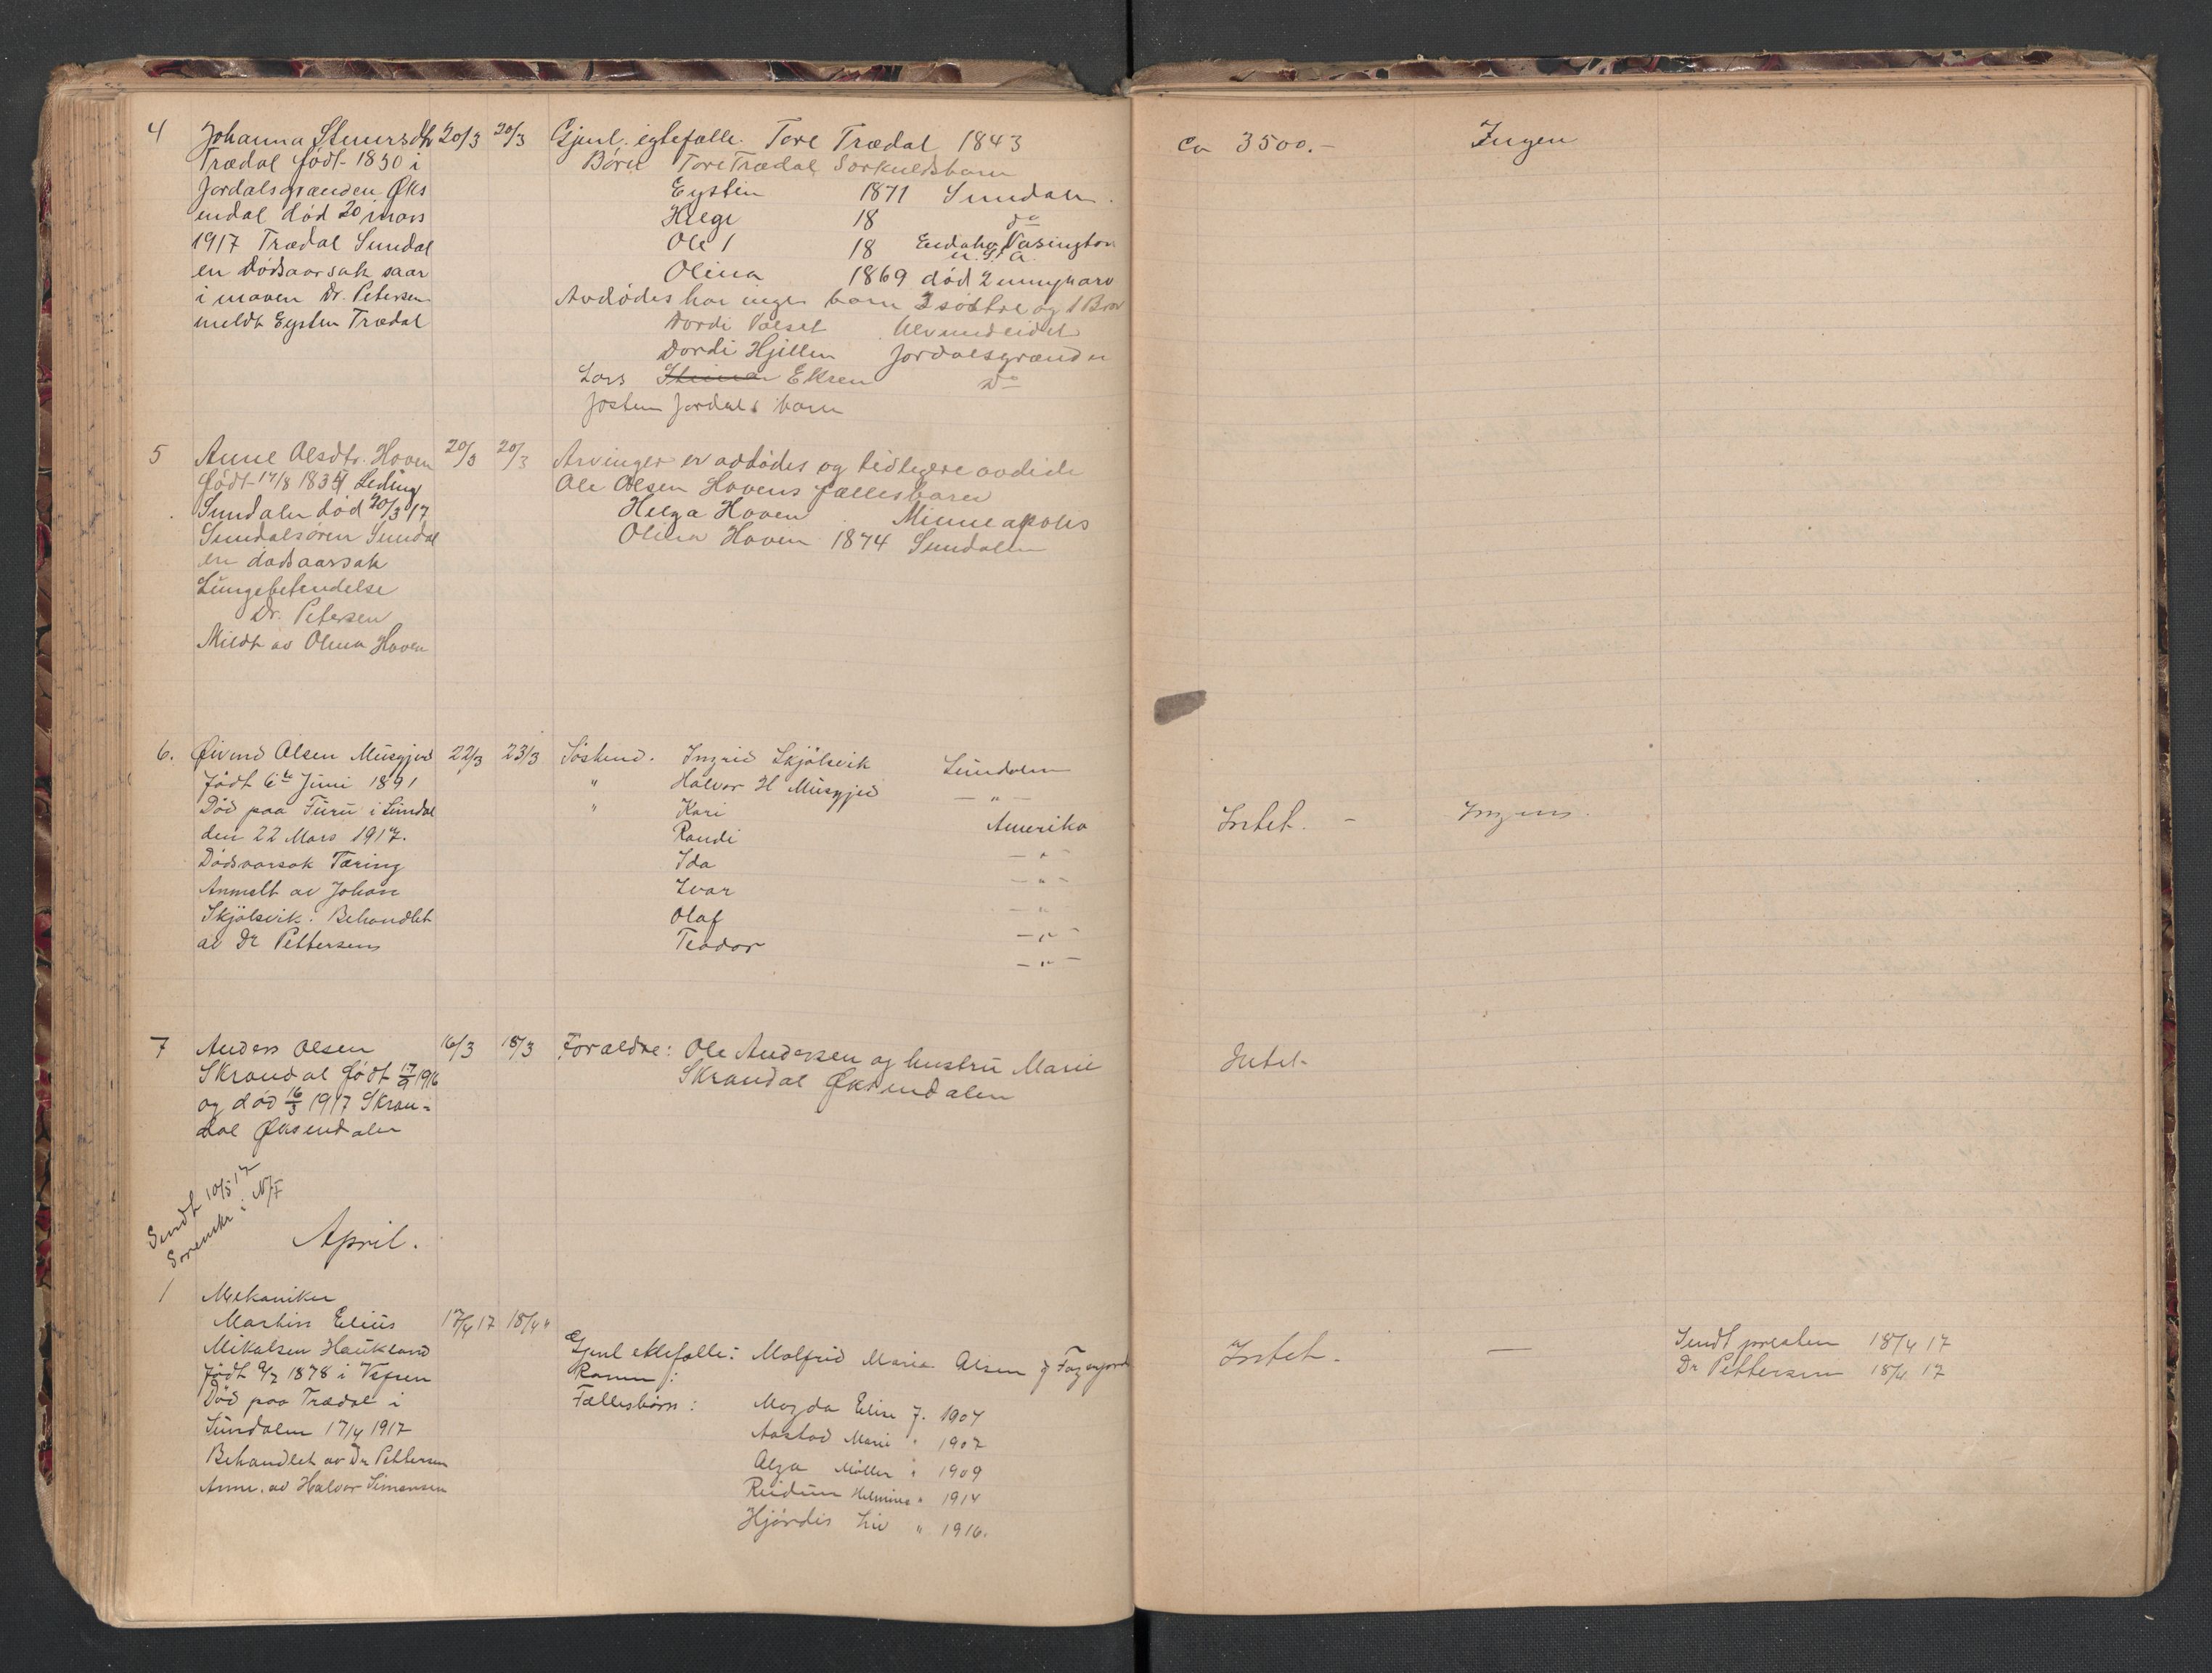 4 Johanna Steinersdtr 20/3 20/3 Gjenl. egtefælle. Tore Trædal 1843 Ca 3500.- Ingen
Trædal født 1830 i
Jordalsgrænden Øks
endal død 20 mars
1917 Trædal Sundal
en dødsaarsak saar
i maven Dr. Petersen
meldt Eysten Trædal
Børn Tore Trædal Sørkuldsbarn
Eystein 1871 Sundalen.
Helge 18 do
Ole 1 18 Eidaho Vasington
U.S.A.
Olina 1869 død 2 umynarv
Avdødes har ingen barn 2 søstre og 1 Bror
Dordi Valset Ulvundeidet
Dordi Hjellen Jordalsgrænden
Lars Ekren Do
Josten Jordals barn
5 Anne Olsdtr. Hoven 20/3 20/3 Arvinger er avdødes og tidligere avdøde
født 17/8 1834 Leding
Sundalen død 20/3 17
Sundalsøren Sundal
en dødsaarsak
Lungebetendelse
Dr. Petersen
Meldt av Olina Hoven
Ole Olsen Hovens fællesbarn
Helga Hoven Minneapolis
Olina Hoven 1874 Sundalen
6. Øivind Olsen Musgjerd 22/3 23/3 Søskend. Ingrid Skjølsvik Sundalen
født 6te Juni 1891
Død paa Furu i Sundal
den 22 Mars 1917.
Dødsaarsak Tæring
Anmelt av Johan
Skjølsvik. Behandlet
av Dr Pettersen
" Halvor H Musgjed — " —
" Kari Amerika
Randi — " —
Ida — " —
Ivar — " —
Olaf — " —
Teodor — " —
Intet. - Ingen.
7 Anders Olsen 16/3 18/3 Forældre: Ole Andersen og hustru Marie Intet
Skrondal født 17/9 1916
og død 16/3 1917 Skron=
dal Øksendalen
Skrondal Øksendalen
Sendt 10/5 17
Sorenskr i N/F
April.
1 Mekaniker
Martin Elius 17/4 17 18/4 "
Mikalsen Haukland
født 9/2 1878 i Vefsen
Død paa Trædal i
Sundalen 17/4 1917
Behandlet av Dr Pettersen
Anm. av Halvor Simonsen
Gjenl ektefælle: Molfrid Marie Olsen f Fagerjord
Ranen:
Fællesbørn: Magda Elise f. 1904
Aastad Marie " 1907
Alga Møller " 1909
Reidun Helmine " 1914
Hjørdis Liv " 1916.
Intet. — Sendt presten 18/4 17
Dr Pettersen 18/4 17